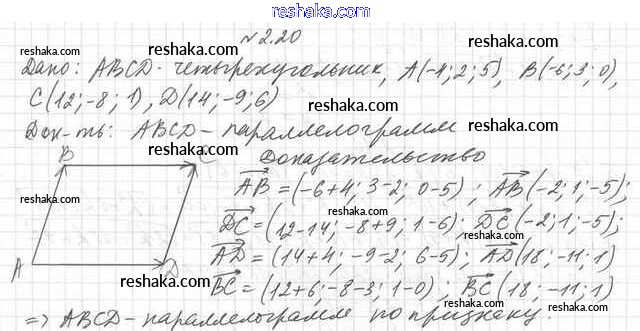 reshaka.com
№2.20
Дано: ABCD - четырехугольник, A(-4; 2; 5), B(-6; 3; 0),
C(12; -8; 1), D(14; -9; 6)
Док-ть: ABCD - параллелограмм
Доказательство
B C
A D
AB = (-6+4; 3-2; 0-5); AB(-2; 1; -5);
DC = (12-14; -8+9; 1-6); DC(-2; 1; -5);
AD = (14+4; -9-2; 6-5); AD(18; -11; 1)
BC = (12+6; -8-3; 1-0); BC(18; -11; 1)
=> ABCD - параллелограмм по признаку.
reshaka.com
reshaka.com
reshaka.com
reshaka.com
reshaka.com
reshaka.com
reshaka.com
reshaka.com
reshaka.com
reshaka.com
reshaka.com
reshaka.com